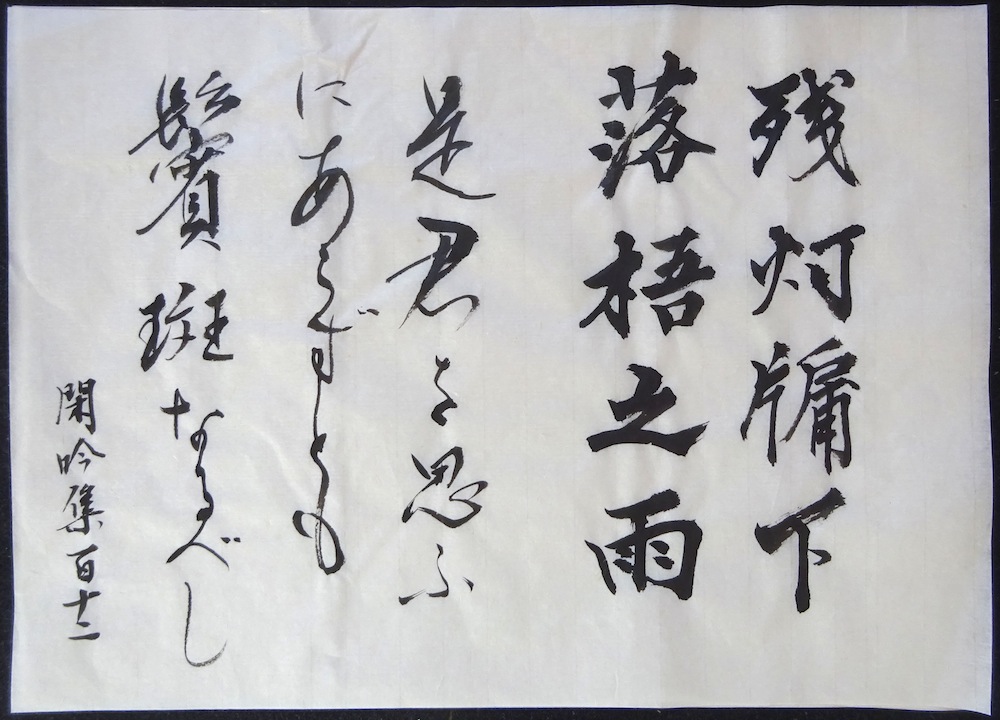 残灯牖下
落梧之雨
是君を思ふ
にあらずとも
鬢斑なるべし
閑吟集百十二